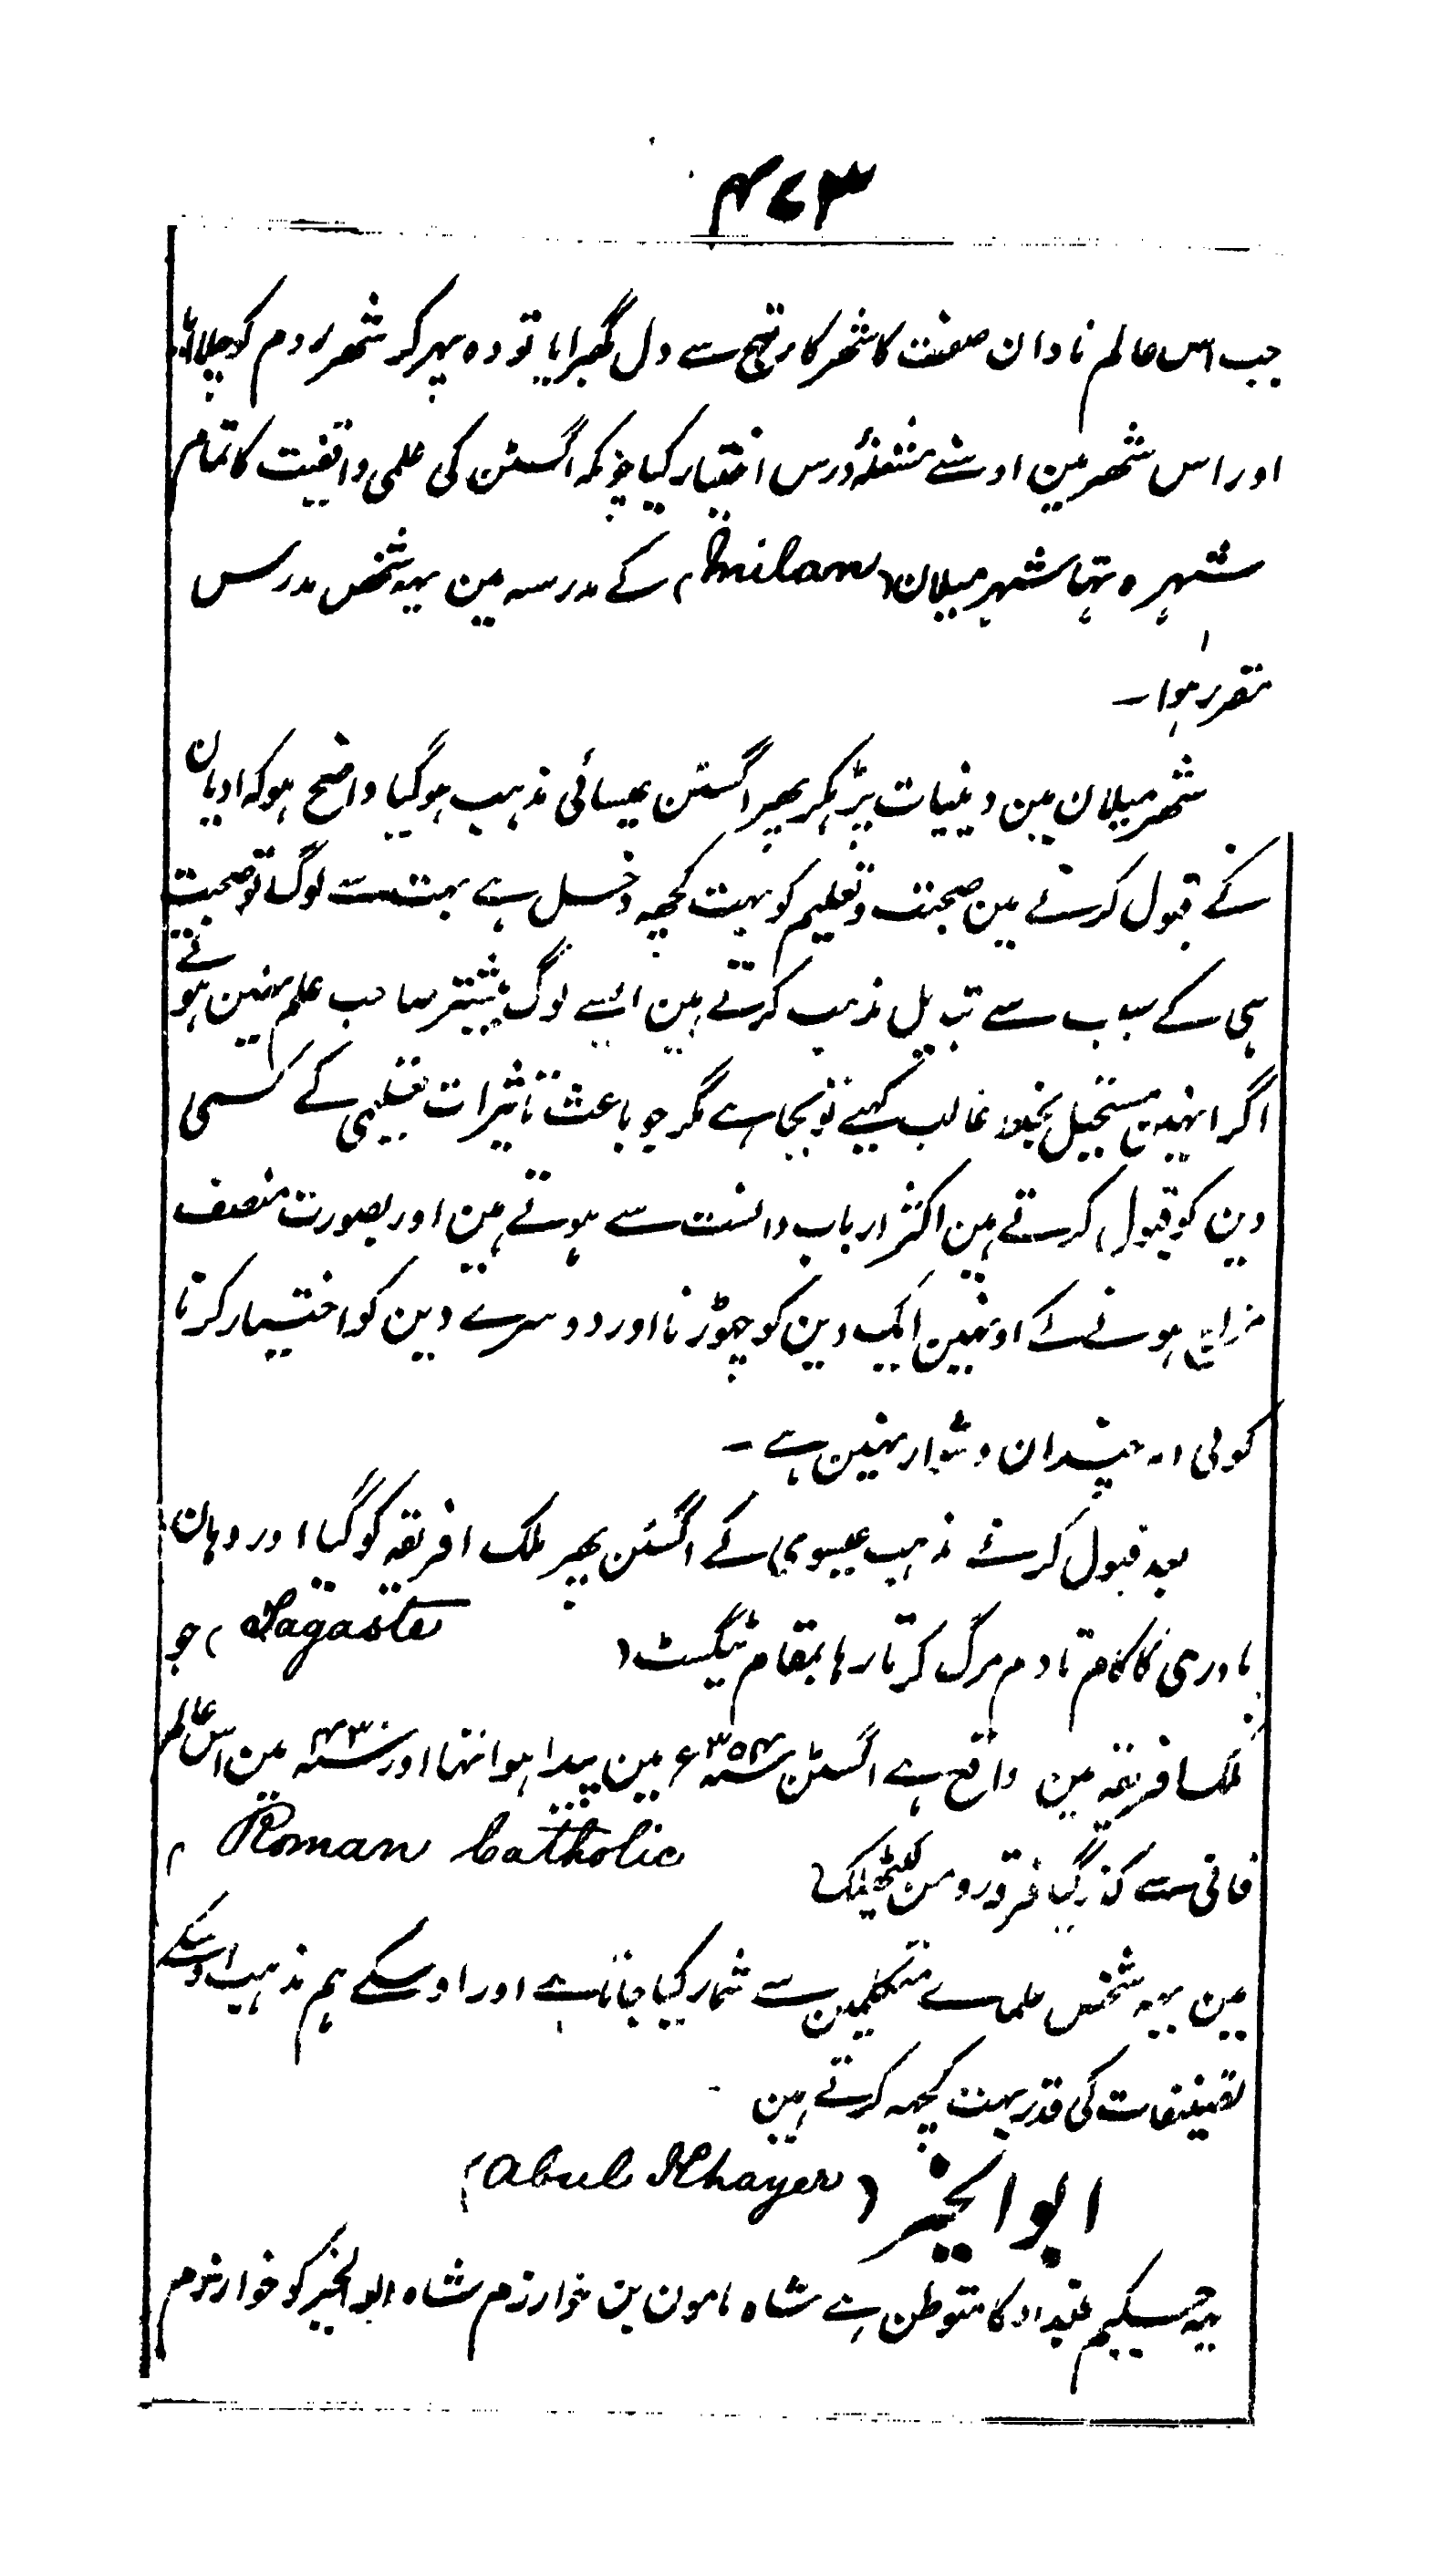 ۴۷۳
جب اس عالم نادان صفت کا شھر کارتھج سے دل گھبرایا تو وہ پہر کر شھر روم کو چلا آیا
اور اس شھر مین اوسنے مشغلۂ درس اختیار کیا چونکہ اگسٹن کی علمی واقفیت کا تمام
شہرہ تہا شہر میلان (Milan) کے مدرسہ مین یہہ شخص مدرس
مقرر ہوا ۔
شھر میلان مین دینیات پڑہکر پھر اگسٹن عیسائی مذہب ہوگیا واضح ہو کہ ادیان
کے قبول کرنے مین صحبت و تعلیم کو بہت کچھہ دخل ہے بہت سے لوگ تو صحبت
ہی کے سبب سے تبدیل مذہب کرتے ہین ایسے لوگ بیشتر صاحب علم نہین ہوتے
اگر انہین مستحیل بخلط غالب کہیے تو بجا ہے مگر جو باعث تاثیرات تعلیمی کے کسی
دین کو قبول کرتے ہین اکثر ارباب دانست سے ہوتے ہین اور بصورت منصف
مزاج ہونے کے اونہین ایک دین کو چھوڑنا اور دوسرے دین کو اختیار کرنا
کوئی امر چندان دشوار نہین ہے ۔
بعد قبول کرنے مذہب عیسوی کے اگسٹن پھر ملک افریقہ کو گیا اور وہان
پادری کا کام تا دم مرگ کرتا رہا بمقام ٹیگسٹ (Tagaste) جو
ملک افریقہ مین واقع ہے اگسٹن سنہ ۳۵۴ء مین پیدا ہوا تہا اور سنہ ۴۳۰ مین اس عالم
فانی سے گذر گیا فرقہ رومن کیتھلک (Roman Catholic)
مین یہہ شخص علماے متکلمین سے شمار کیا جاتا ہے اور اوسکے ہم مذہب اوسکے
تصنیفات کی قدر بہت کچھہ کرتے ہین ۔
ابو الخیر (Abul Khayer)
یہہ حکیم بغداد کا متوطن ہے شاہ مامون بن خوارزم شاہ ابوالخیر کو خوارزم